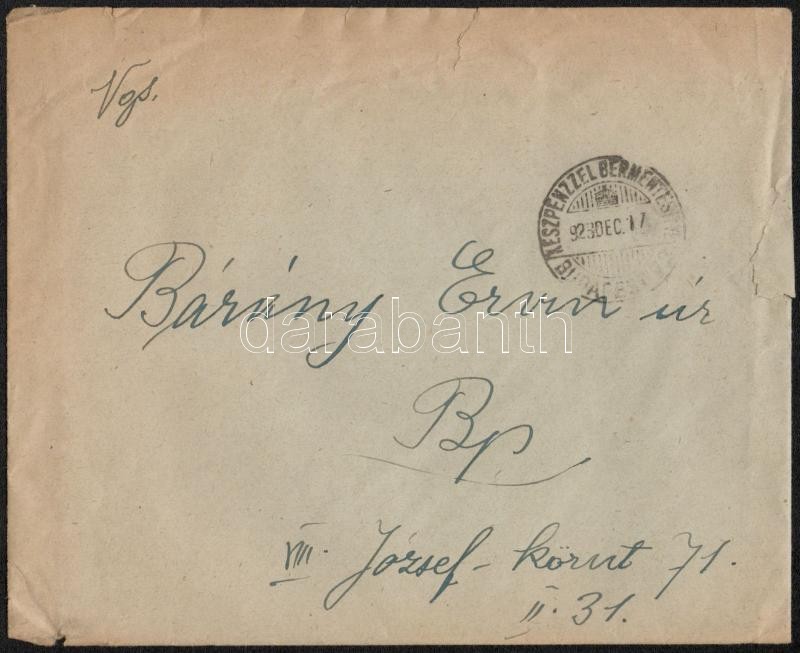 Vgs.
KÉSZPÉNZZEL BÉRMENTESITVE
923 DEC. 17
BUDAPEST
Bárány Ervin úr
darabanth
Bp
VIII. József-körut 71.
II. 31.